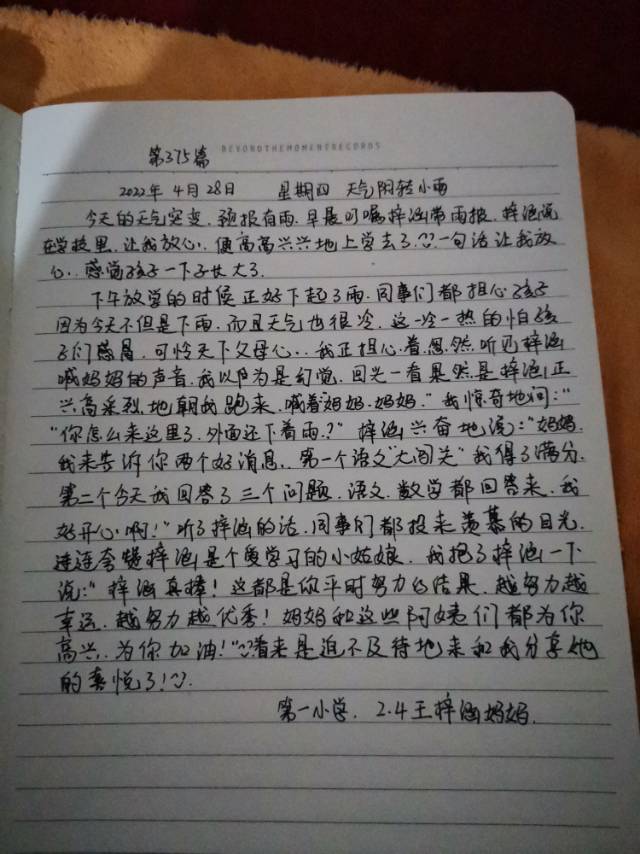 BEYONDTHEMOMENTRECORDS
第375篇
2022年4月28日 星期四 天气阴转小雨
今天的天气突变.预报有雨.早晨叮嘱梓涵带雨披.梓涵说
在学校里.让我放心.便高高兴兴地上学去了.一句话让我放
心.感觉孩子一下子长大了.
下午放学的时候正好下起了雨.同事们都担心孩子
因为今天不但是下雨.而且天气也很冷.这一冷一热的怕孩
子们感冒.可怜天下父母心..我正担心着.忽然听到梓涵
喊妈妈的声音.我以为是幻觉.回头一看果然是梓涵正
兴高采烈地朝我跑来.喊着"妈妈.妈妈."我惊奇地问:"
"你怎么来这里了.外面还下着雨.?"梓涵兴奋地说:"妈妈.
我来告诉你两个好消息.第一个语文"大闯关"我得了满分.
第二个今天我回答了三个问题.语文.数学都回答来.我
好开心啊!"听了梓涵的话.同事们都投来羡慕的目光.
连连夸赞梓涵是个爱学习的小姑娘.我抱了梓涵一下
说:"梓涵真棒!这都是你平时努力的结果.越努力越
幸运.越努力越优秀!妈妈和这些阿姨们都为你
高兴.为你加油!"看来是迫不及待地来和我分享她
的喜悦了!
第一小学.2.4王梓涵妈妈.